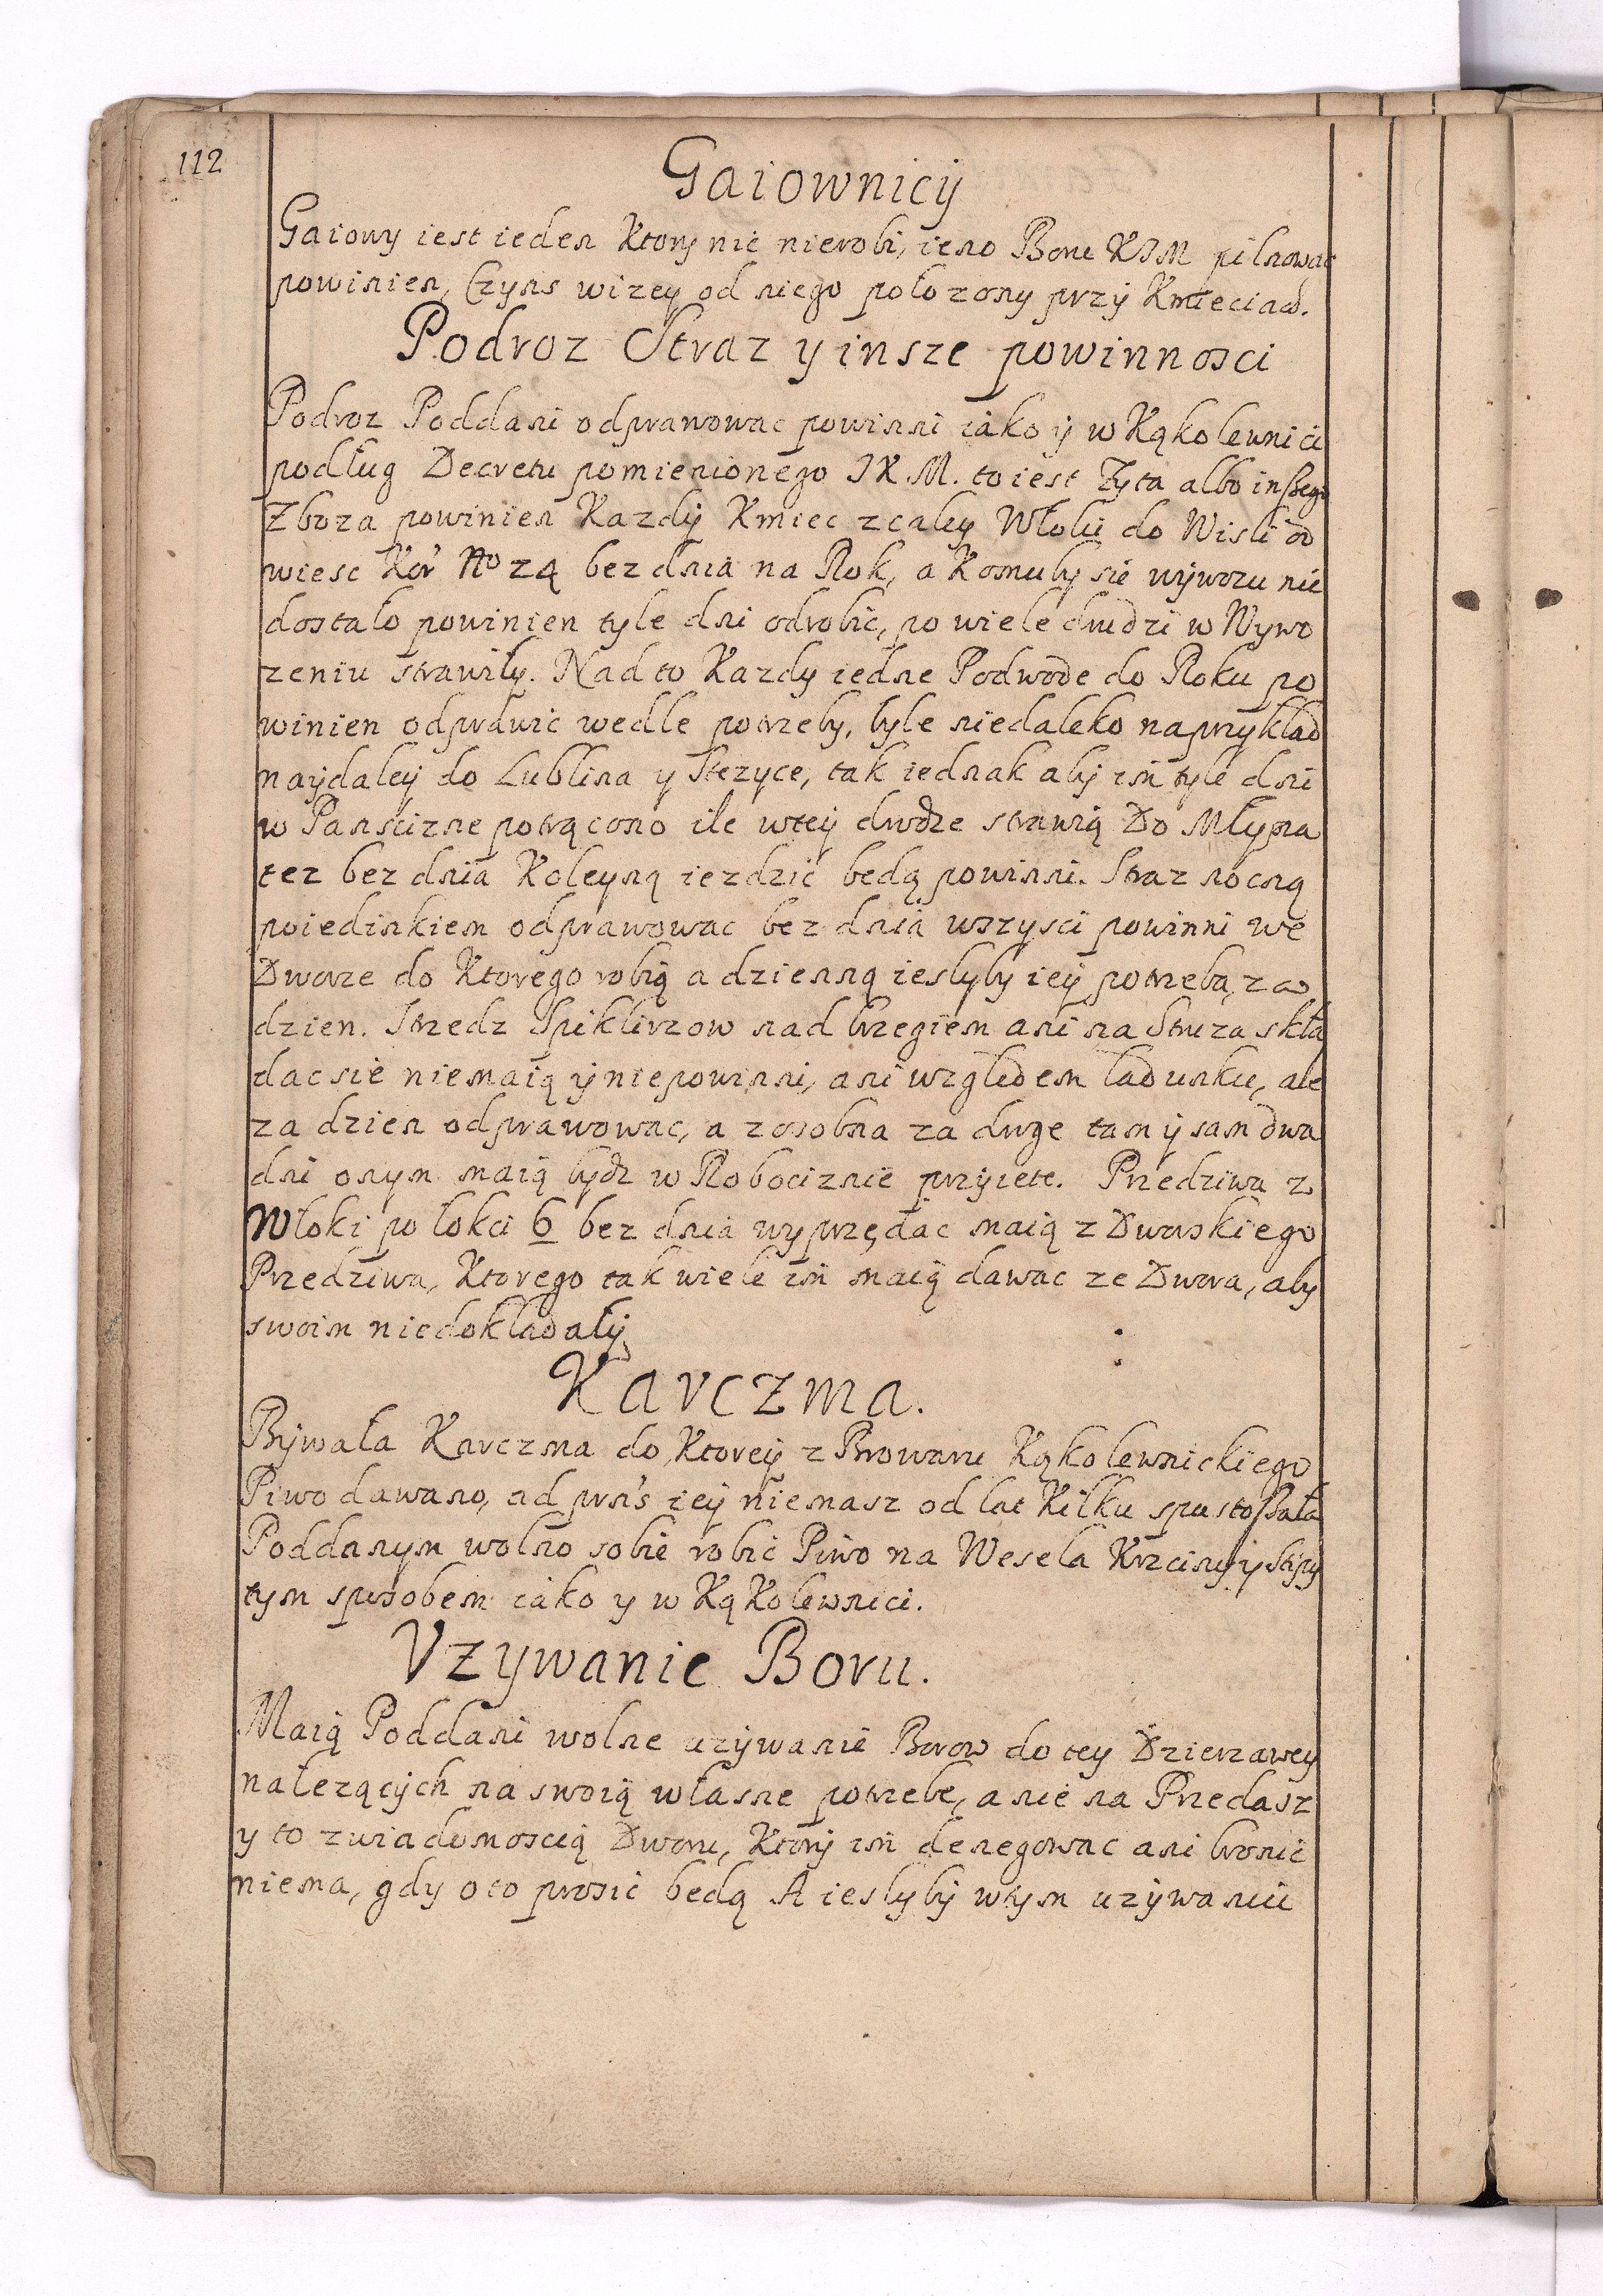 112
Gaiownicÿ
Gaiowy iest ieden Ktory nic nierobi, ieno Boru KJM pilnowac
powinien, Czyns wizey od niego polozony przÿ Kmieciach.
Podroz Straz y insze powinnosci
Podroz Poddani odprawowac powinni iako ÿ w Kąkolewnici
podług Decretu pomienionego JKM. to iest Zyta albo inszego
Zboza powinien Kazdÿ Kmiec z caleÿ Włoki do Wisli od
wiesc Kor No 24 bez dnia na Rok, a Komuby sie wÿwozu nie
dostało powinien tyle dni odrobic, po wiele drudzi w Wywo
zeniu strawiły. Nad to Kazdy iedne Podwode do Roku po
winien odprawic wedle potrzeby, byle niedaleko naprzykład
naÿdaleÿ do Lublina y Stezyce, tak iednak abÿ im tyle dni
w Panscizne potrącono ile w teÿ drodze strawią Do Młyna
tez bez dnia Koleyną iezdzic bedą powinni. Straz nocną
poiedinkiem odprawowac bez dnia wszysci powinni we
Dworze do Ktorego robią a dzienną ieslyby ieÿ potrzeba, za
dzien. Strzedz Spiklirzow nad brzegiem ani na Struza skła
dac sie niemaią ÿ niepowinni, ani względem ładunku, ale
za dzien odprawowac, a zosobna za droge tam ÿ sam dwa
dni onym maią bÿdz w Robociznie przÿiete. Przedziwa z
Włoki po łokci 6 bez dnia wyprzędac maią z Dworskiego
Przedziwa, Ktorego tak wiele im maią dawac ze Dwora, aby
swoim niedokładałÿ
Karczma.
Bÿwała Karczma do Ktoreÿ z Browaru Kąkolewnickiego
Piwo dawano, ad prns ieÿ niemasz od lat Kilku spustoszała
Poddanym wolno sobie robic Piwo na Wesela Krzcinÿ ÿ Stÿpÿ
tym sposobem iako y w Kąkolewnici.
Vzywanie Boru.
Maią Poddani wolne uzÿwanie Borow do tey Dzierzawey
należącÿch na swoią własne potrzebe, a nie na Przedasz
y to z wiadomoscią Dworu, Ktorÿ im denegowac ani bronic
niema, gdy o to prosic bedą A ieslybÿ w tym uzÿwaniu